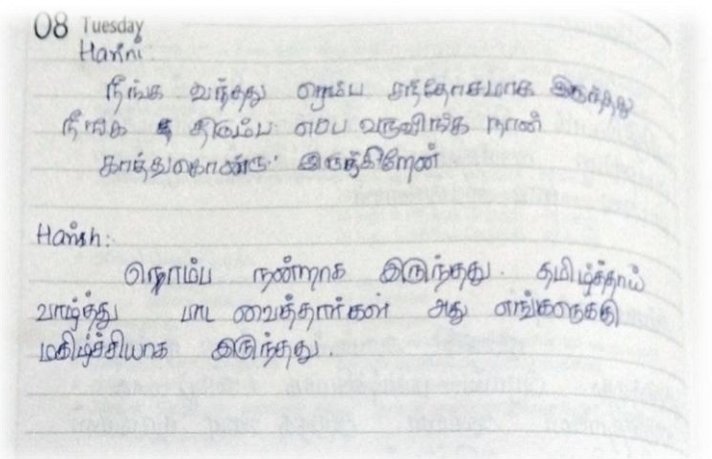 08 Tuesday
Harini:
நீங்க வந்தது ரொம்ப சந்தோசமாக இருந்தது
நீங்க திரும்ப எப்ப வருவிங்க நான்
காத்துகொண்டு இருக்கிறேன்
Harish:
ரொம்ப நன்றாக இருந்தது. தமிழ்த்தாய்
வாழ்த்து பாட வைத்தார்கள் அது எங்களுக்கு
மகிழ்ச்சியாக இருந்தது.